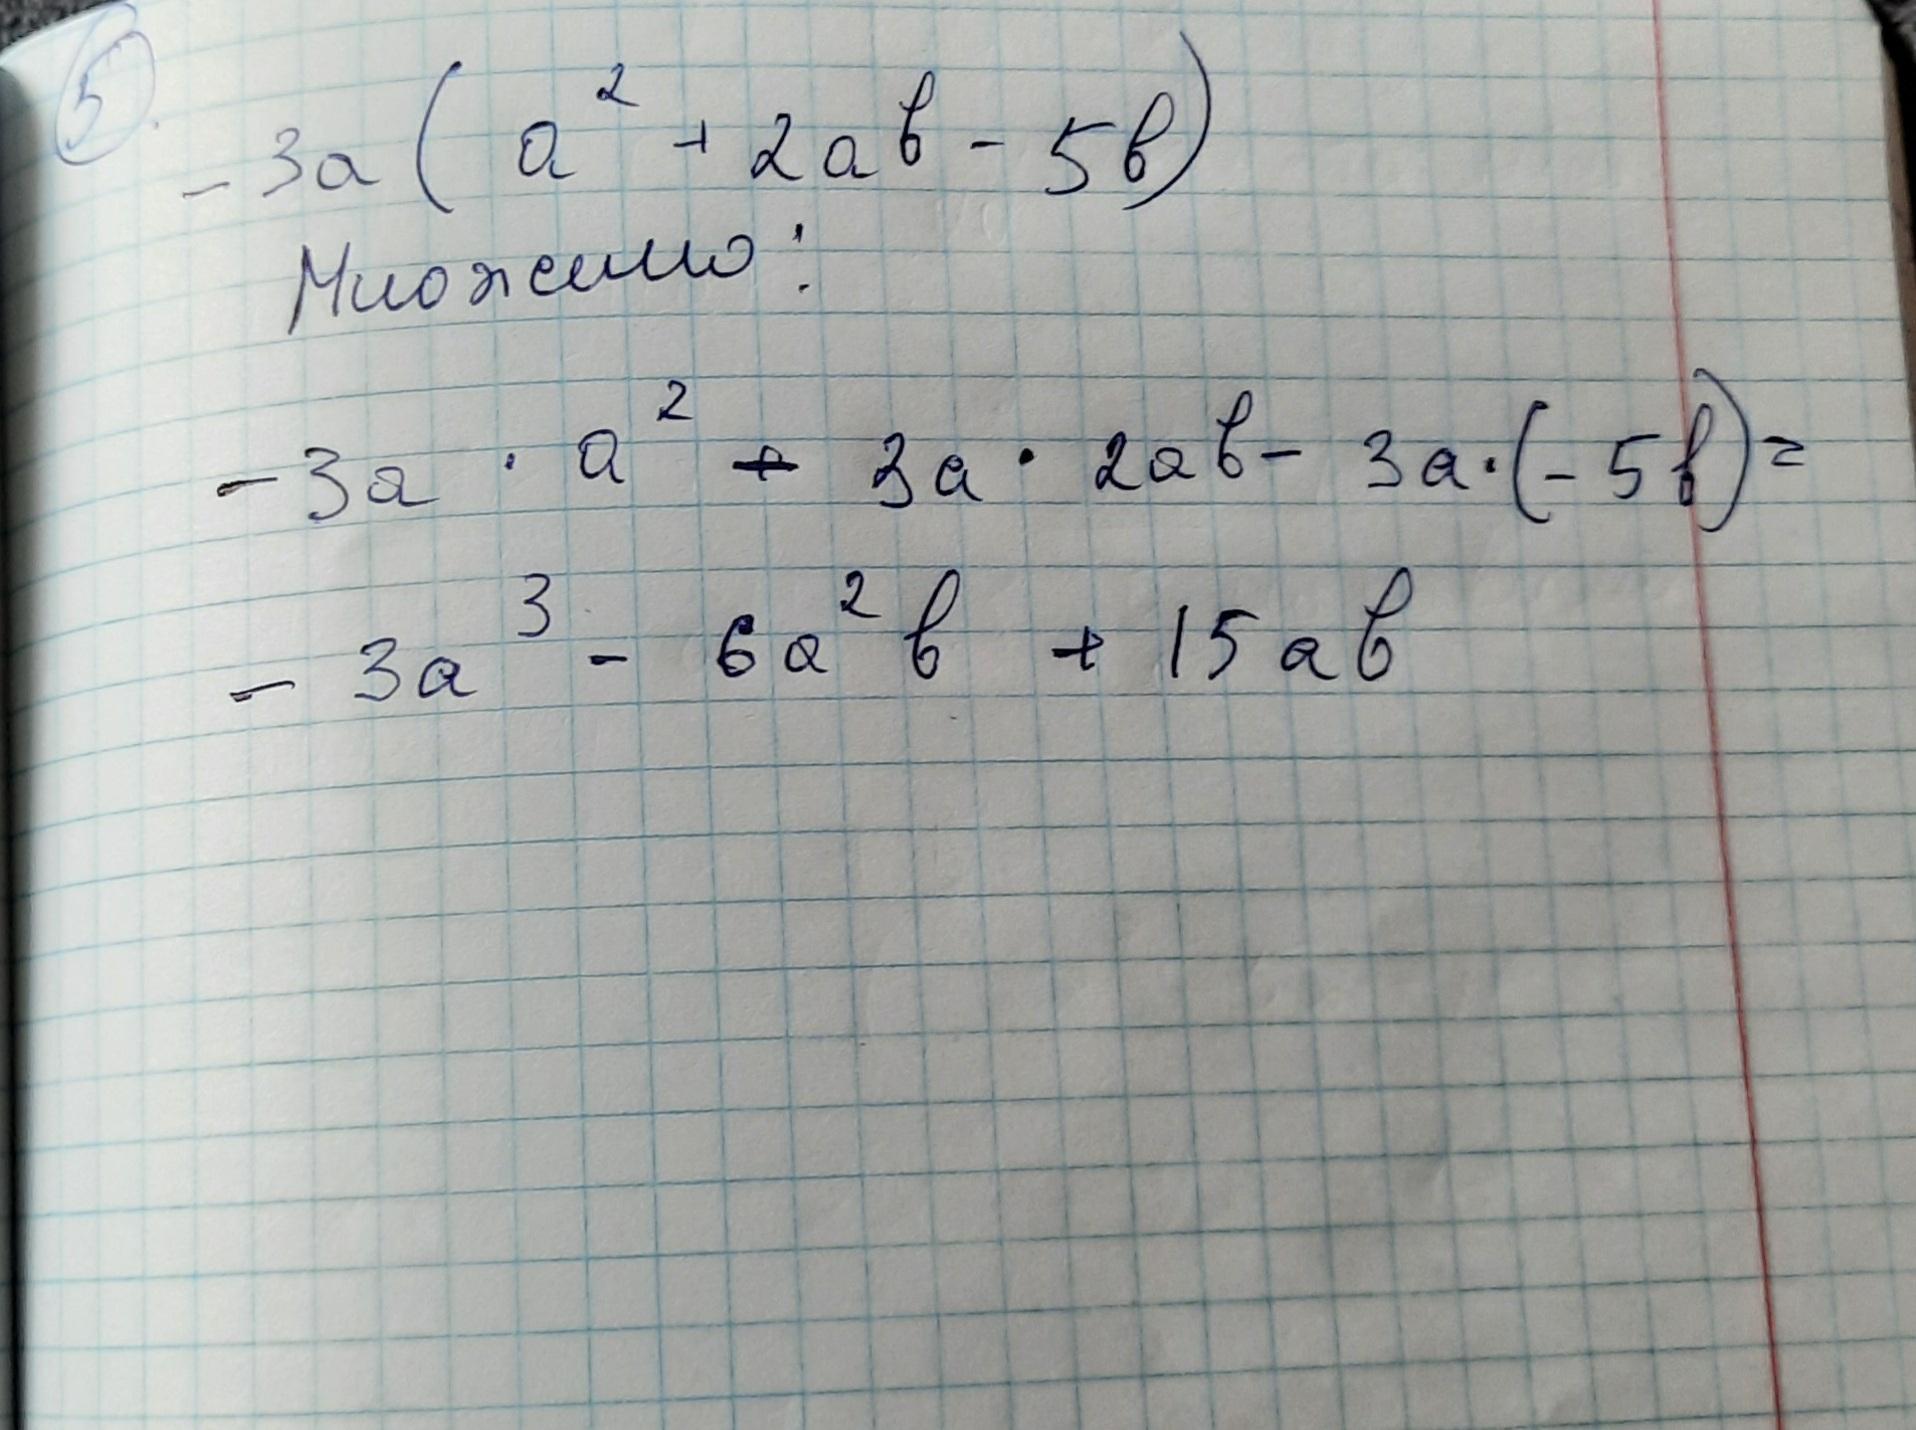 5.
-3a(a² + 2ab - 5b)
Множимо:
-3a · a² + 3a · 2ab - 3a·(-5b) =
-3a³ - 6a²b + 15ab